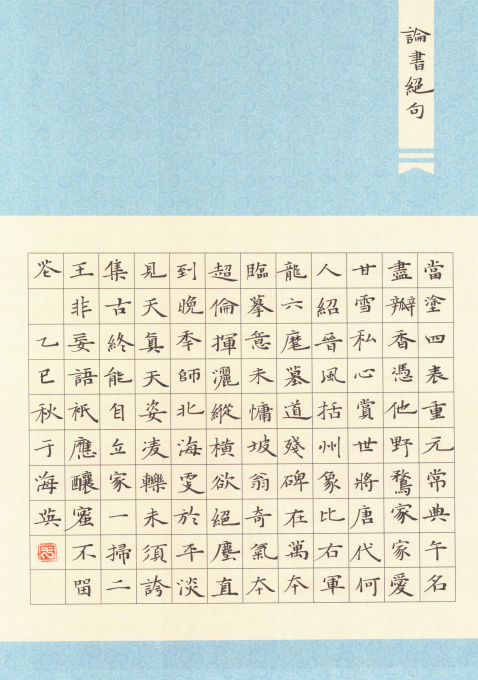 論書絕句
當塗四表重元常典午名
盡瓣香憑他野鶩家家愛
甘雪私心賞世將唐代何
人紹晉風括州象比右軍
龍六墓道殘碑在萬本
臨摹意未慵坡翁奇氣本
超倫揮灑縱橫欲絕塵直
到晚秊師北海更於平淡
見天真天姿凌轢未須誇
集古終能自立家一掃二
王非妄語衹應釀蜜不留
花 乙巳秋于海